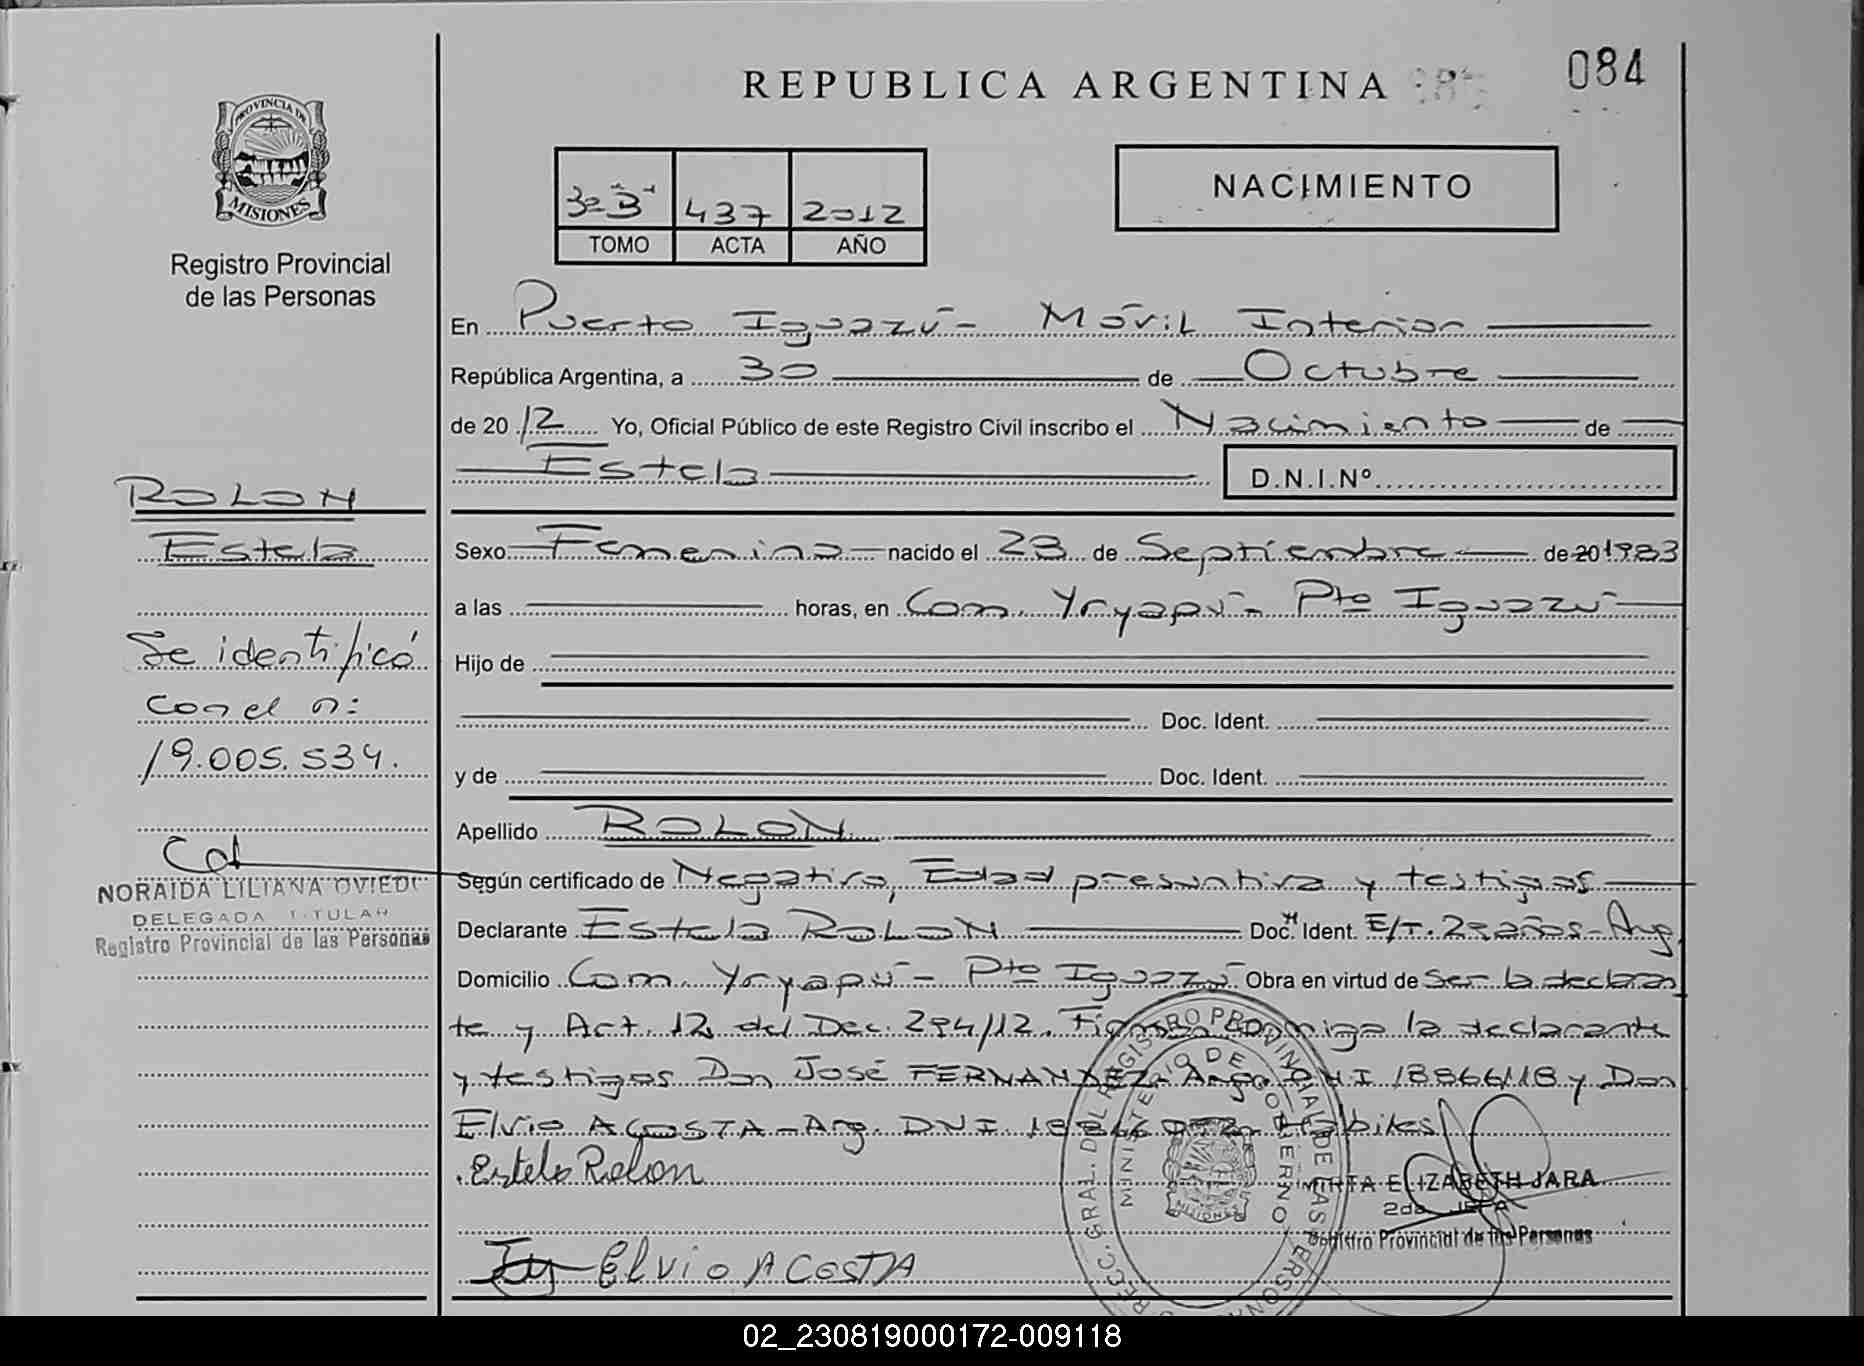 REPUBLICA ARGENTINA
084
PROVINCIA DE
MISIONES
Registro Provincial
de las Personas
437 2012
TOMO ACTA AÑO
NACIMIENTO
En Puerto Iguazú - Móvil Interior
República Argentina, a 30 de Octubre
de 20 12 Yo, Oficial Público de este Registro Civil inscribo el Nacimiento de
Estela D.N.I.Nº
ROLON
Estela
Se identificó
con el n:
19.005.534.
NORAIDA LILIANA OVIEDO
DELEGADA TITULAR
Registro Provincial de las Personas
Sexo Femenino nacido el 23 de Septiembre de 20 1983
a las horas, en Com. Yryapú - Pto Iguazú
Hijo de
Doc. Ident.
y de Doc. Ident.
Apellido ROLON
Según certificado de Negativo, Edad presuntiva y testigos
Declarante Estela ROLON Doc. Ident. E/T. 29 años - Arg.
Domicilio Com. Yryapú - Pto Iguazú Obra en virtud de ser la declaran
te y Art. 12 del Dec. 294/12. Firman conmigo la declarante
y testigos Don José FERNANDEZ - Arg. DNI 18866118 y Don
Elvio ACOSTA - Arg. DNI hábiles
Estela Rolon
Elvio ACOSTA
MIRTA ELIZABETH JARA
2da JEFA
Registro Provincial de las Personas
DIRECC. GRAL. DEL REGISTRO PROVINCIAL DE LAS PERSONAS
MINISTERIO DE GOBIERNO
MISIONES
02_230819000172-009118